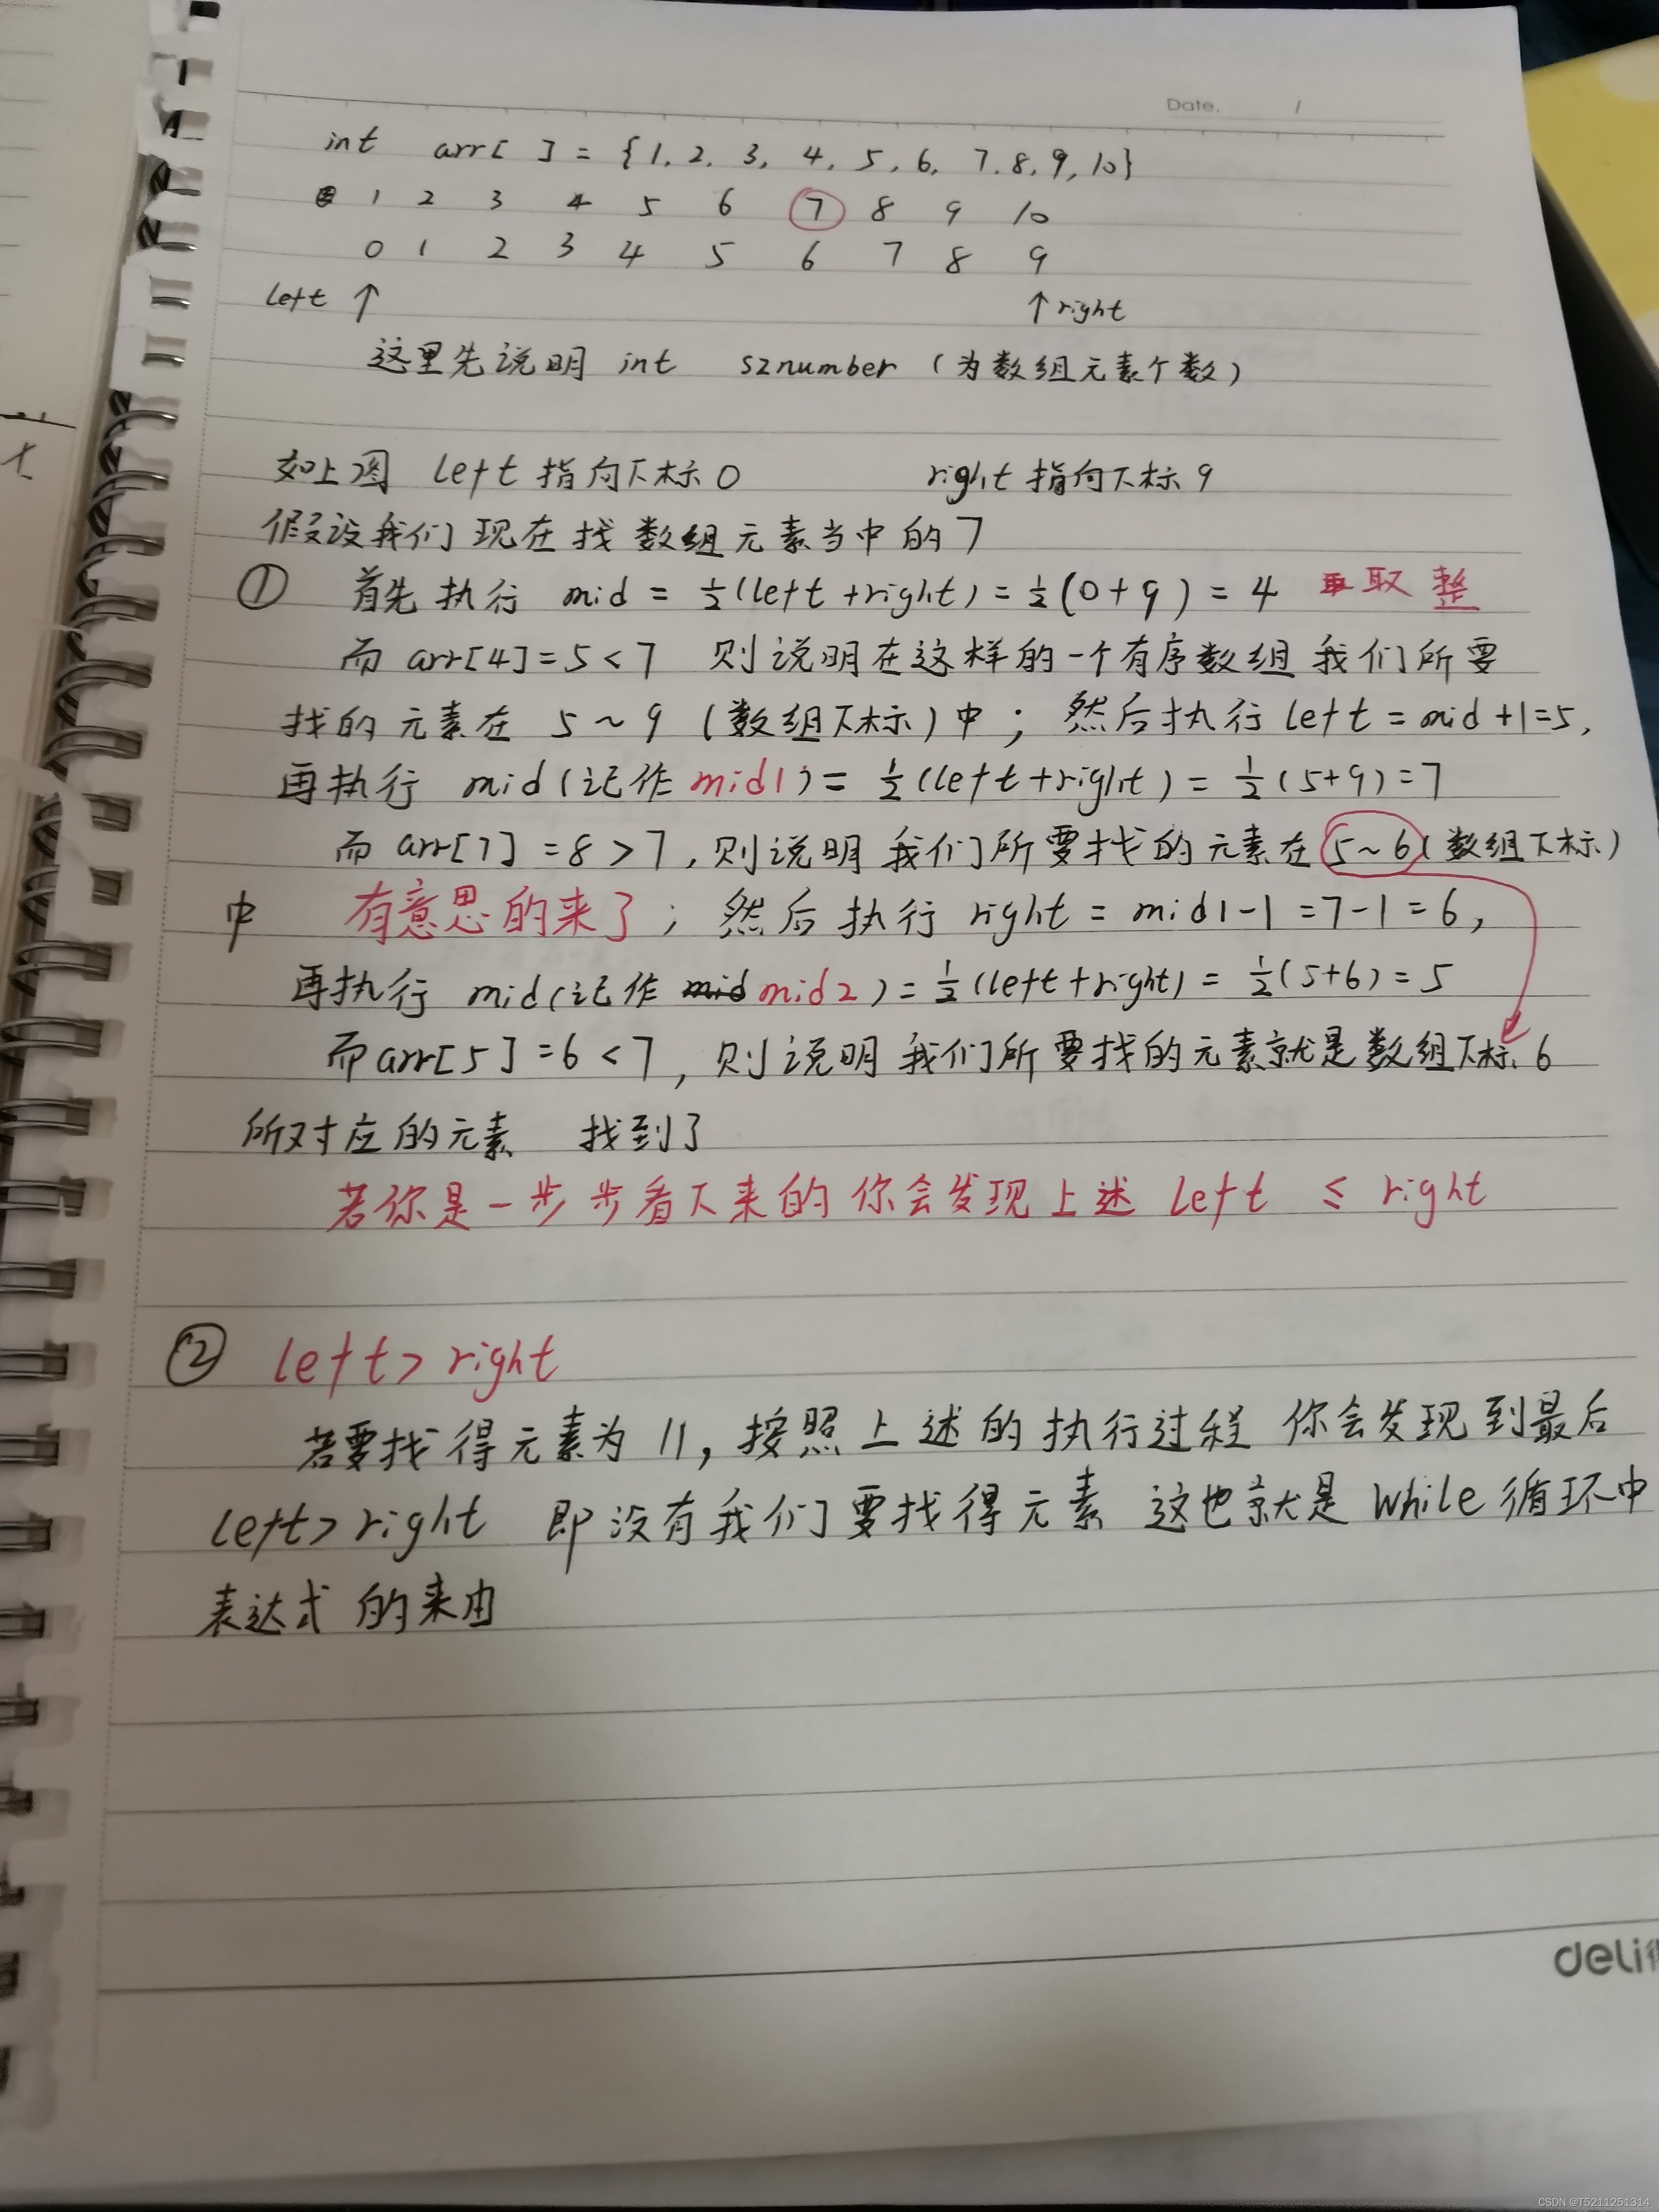 Date. /
int arr[ ] = {1, 2, 3, 4, 5, 6, 7, 8, 9, 10}
1 2 3 4 5 6 7 8 9 10
0 1 2 3 4 5 6 7 8 9
left ↑ ↑ right
这里先说明 int sznumber (为数组元素个数)
如上图 left 指向下标 0 right 指向下标 9
假设我们现在找数组元素当中的 7
① 首先执行 mid = ½(left + right) = ½(0+9) = 4 取整
而 arr[4] = 5 < 7 则说明在这样的一个有序数组我们所要
找的元素在 5 ~ 9 (数组下标) 中; 然后执行 left = mid + 1 = 5,
再执行 mid (记作 mid1) = ½(left + right) = ½(5+9) = 7
而 arr[7] = 8 > 7, 则说明我们所要找的元素在 5~6 (数组下标)
中 有意思的来了; 然后执行 right = mid1 - 1 = 7 - 1 = 6,
再执行 mid (记作 mid mid2) = ½(left + right) = ½(5+6) = 5
而 arr[5] = 6 < 7, 则说明我们所要找的元素就是数组下标 6
所对应的元素 找到了
若你是一步步看下来的你会发现上述 left ≤ right
② left > right
若要找得元素为 11, 按照上述的执行过程 你会发现到最后
left > right 即没有我们要找得元素 这也就是 while 循环中
表达式的来由
deli
CSDN @T5211251314